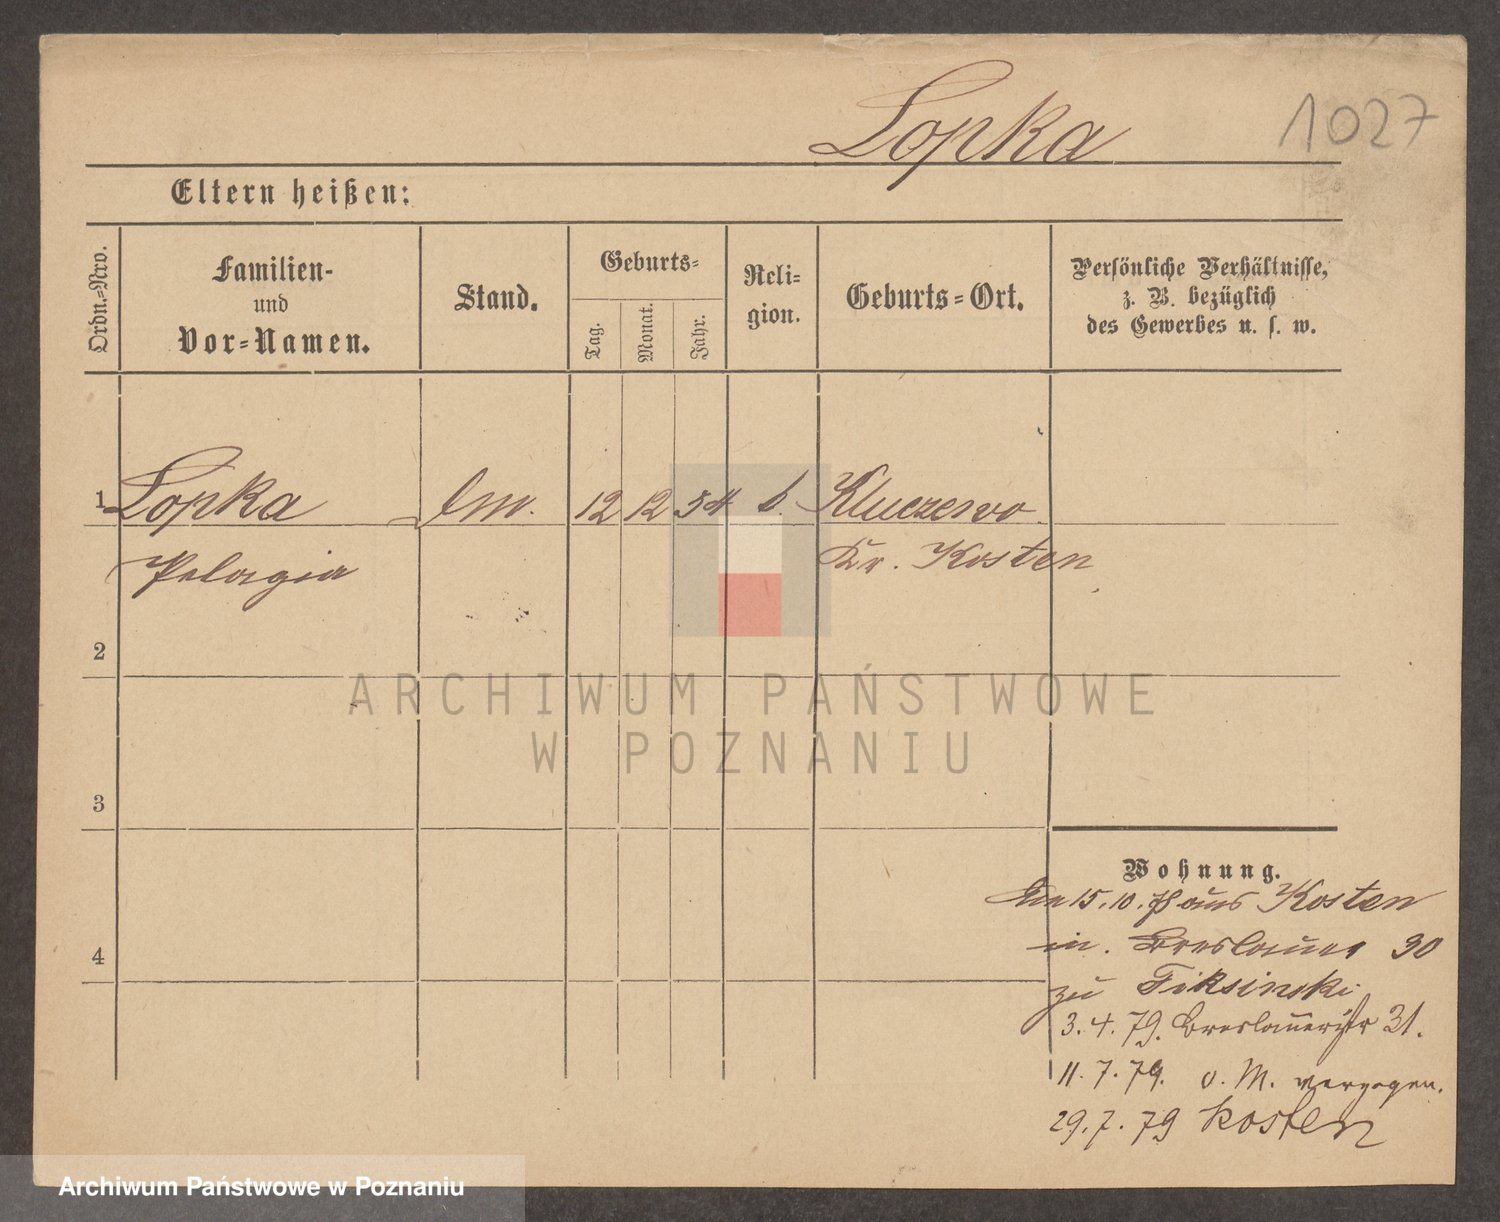 Lopka
1027
Eltern heißen:
Ordn.-Nro.
Familien-
und
Vor-Namen.
Stand.
Geburts-
Tag.
Monat.
Jahr.
Reli-
gion.
Geburts-Ort.
Persönliche Verhältnisse,
z. B. bezüglich
des Gewerbes u. s. w.
1 Lopka 12 12 54 Kluczewo
Pelagia Kr. Kosten
2
ARCHIWUM PAŃSTWOWE
W POZNANIU
3
Wohnung.
15.10.78 aus Kosten
4
in. Breslauer 30
zu Fiksinski
3.4.79. Breslauerstr 31.
11.7.79. o. M. verzogen.
29.7.79 Kosten
Archiwum Państwowe w Poznaniu